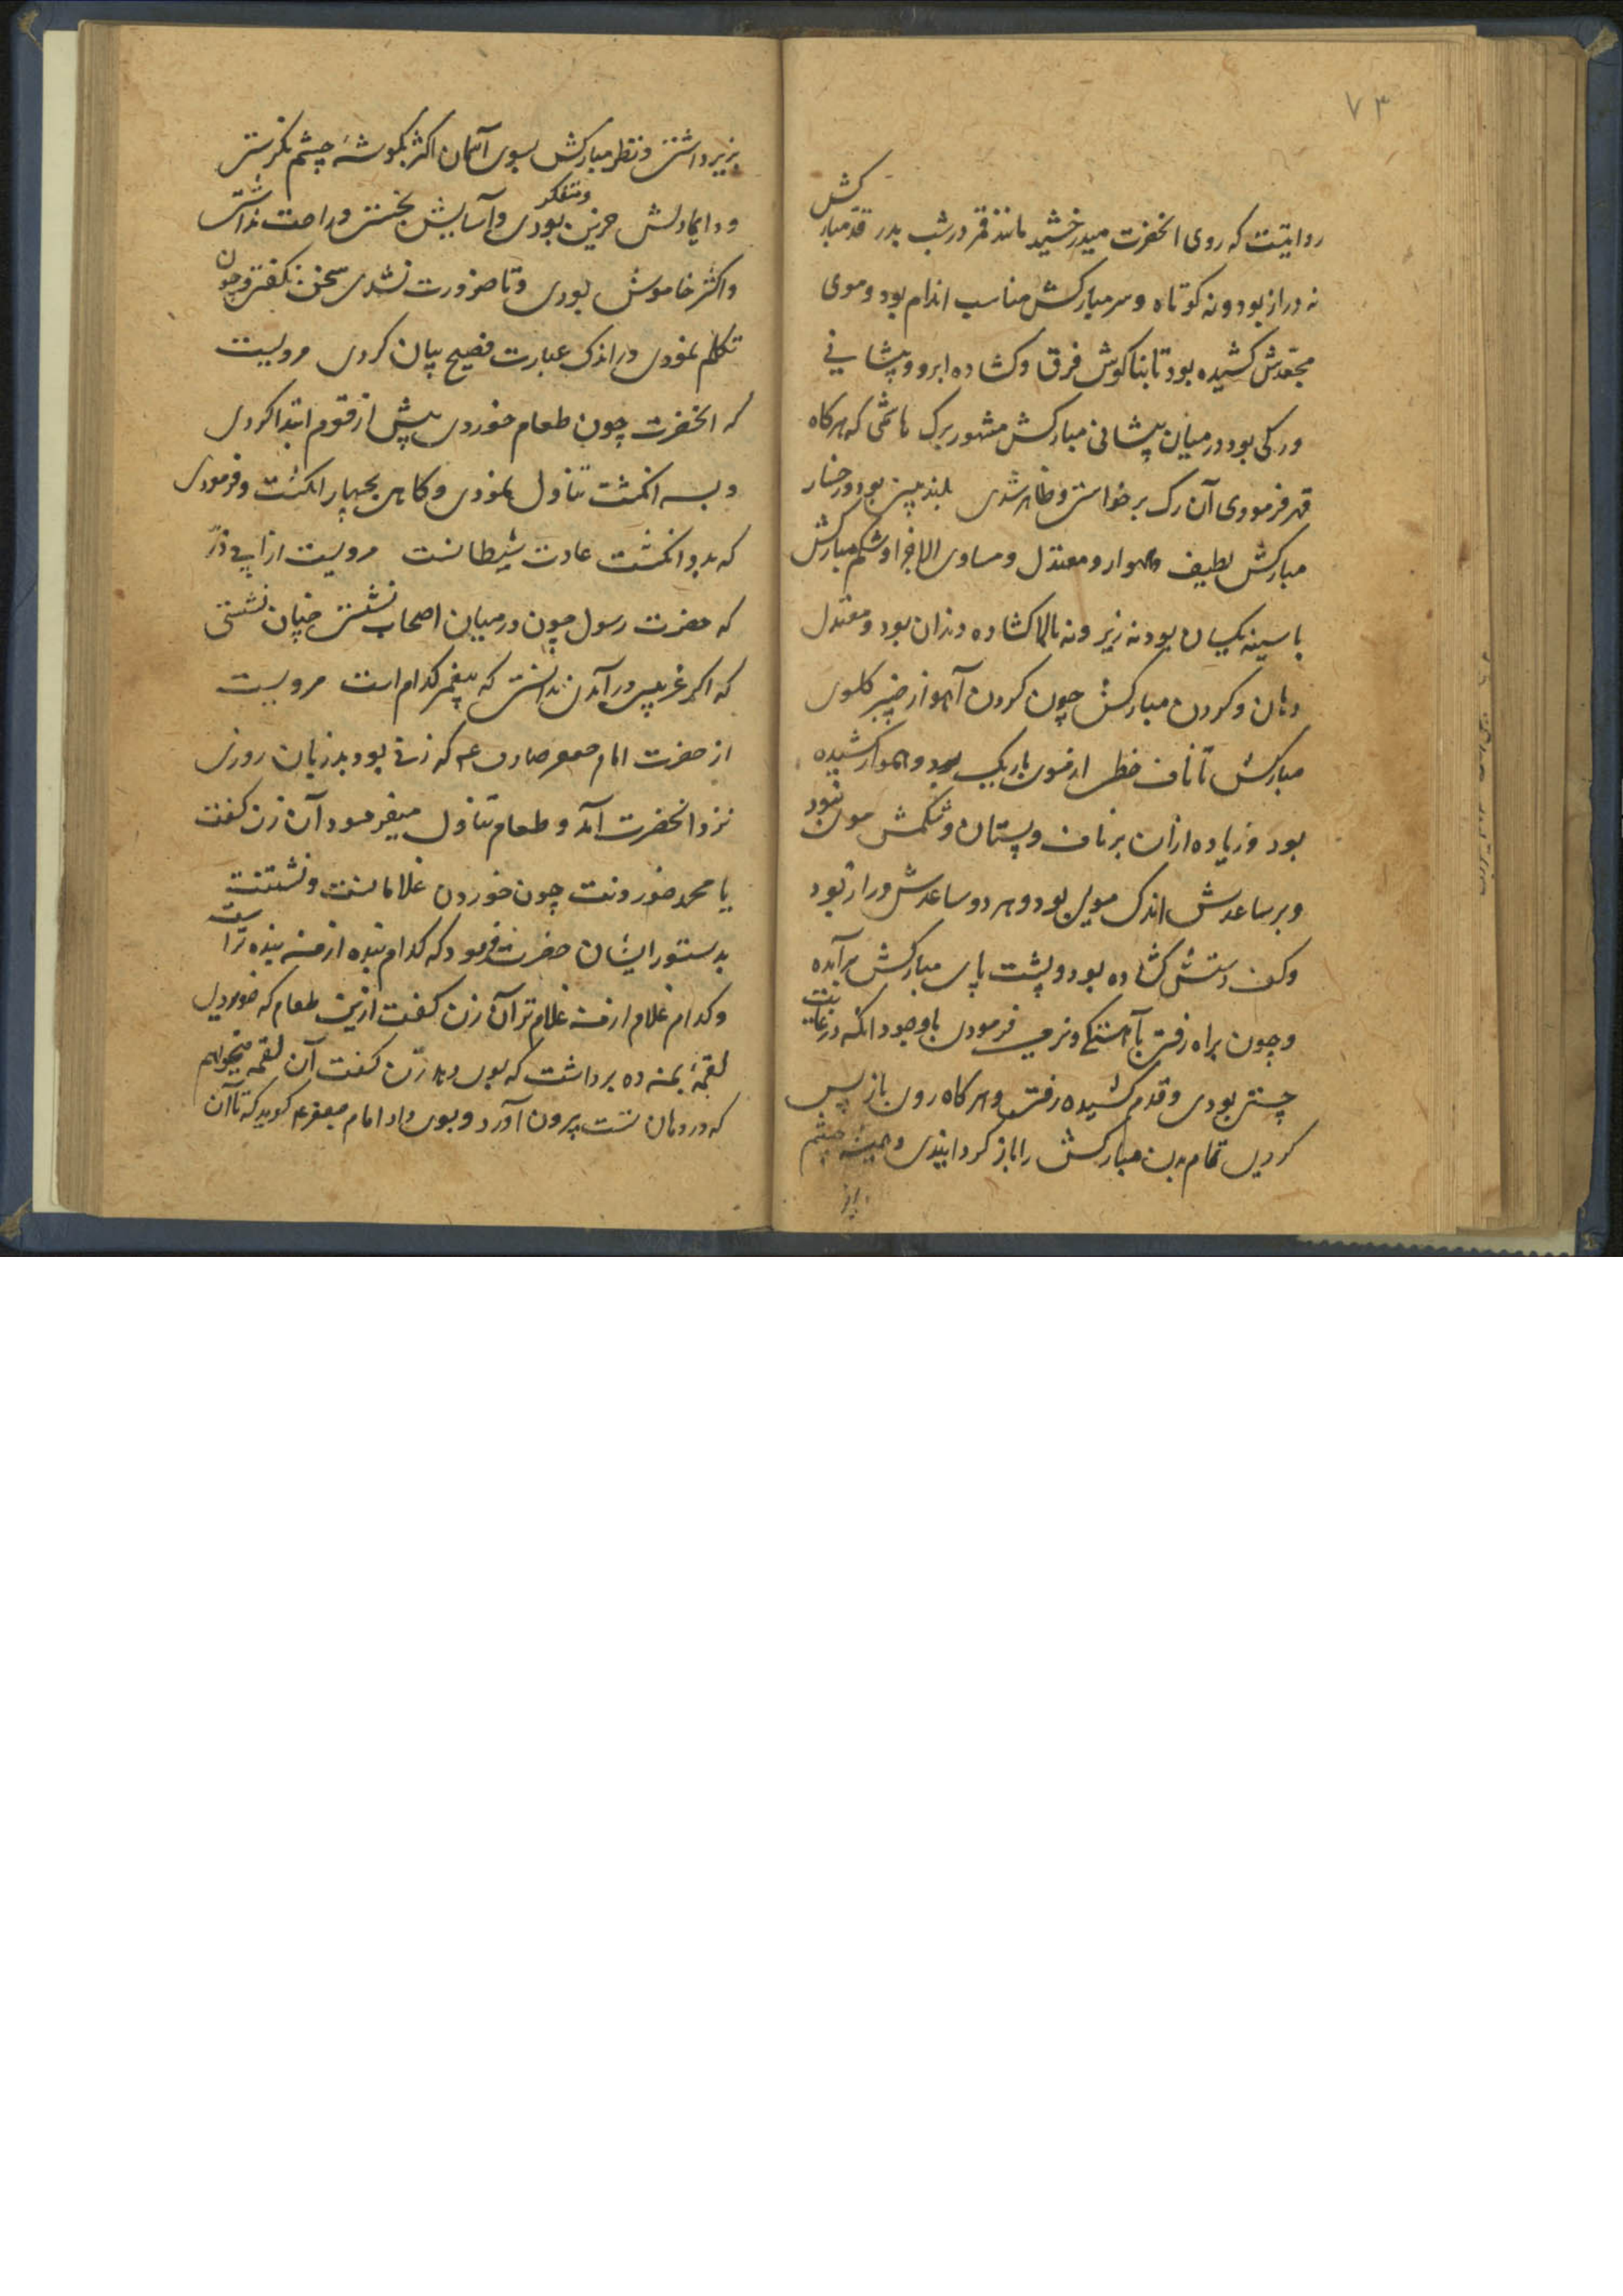 ۷۳
روایتست که روی انحضرت میدرخشید مانند قمر در شب بدر قد مبارکش
نه دراز بود و نه کوتاه و سر مبارکش مناسب اندام بود و موی
مجعدش کشیده بود تا بناکوش فرق و کشاده ابرو و پیشانی
و رکی بود در میان پیشانی مبارکش مشهور برک هاشمی که هرکاه
قهر فرمودی آن رک برخواستی و ظاهر شدی بلند بینی بود و رخسار
مبارکش لطیف و هموار و معتدل و مساوی الاجزا و شکم مبارکش
با سینه یکسان بود نه زیر و نه بالا کشاده دندان بود و معتدل
دهان و کردن مبارکش چون کردن آهو از چنبر کلوی
مبارکش تا ناف خطی از موی باریک بود و هموار کشیده
بود و زیاده ازان بر ناف و پستان و شکمش موی نبود
و بر ساعدش اندک مویی بود و هر دو ساعدش دراز بود
و کف دستش کشاده بود و پشت پای مبارکش برآمده
و چون براه رفتی بآهستکی و نرمی فرمودی باوجود انکه در غایت
چستی بودی و قدم کشیده رفتی و هرکاه روی باز پس
کردی تمام بدن مبارکش را باز کردانیدی و همیشه چشم
بزیر داشتی و نظر مبارکش بسوی آسمان اکثر بکوشهٔ چشم نکرستی
و دایما دلش حزین و متفکر بودی و آسایش نجستی و راحت نداشتی
و اکثر خاموش بودی و تا ضرورت نشدی سخن نکفتی و چون
تکلم نمودی در اندک عبارت فصیح بیان کردی مرویست
که انحضرت چون طعام خوردی پیش از قوم ابتدا کردی
و بسه انکشت تناول نمودی و کاهی بچهار انکشت و فرمودی
که بدو انکشت عادت شیطانست مرویست از ابی ذر
که حضرت رسول چون در میان اصحاب نشستی چنان نشستی
که اکر غریبی درآمدی ندانستی که پیغمبر کدام است مرویست
از حضرت امام جعفر صادق ع که زنی بود بدزبان روزی
نزد انحضرت آمد و طعام تناول میفرمود آن زن کفت
یا محمد خوردنت چون خوردن غلامانست و نشستنت
بدستور ایشان حضرت فرمود که کدام بنده از من بنده تر است
و کدام غلام از من غلام تر آن زن کفت ازین طعام که خوردی
لقمهٔ بمن ده برداشت که بوی دهد زن کفت آن لقمه میخواهم
که در دهان تست بیرون آورد و بوی داد امام جعفر ع کوید که تا آن